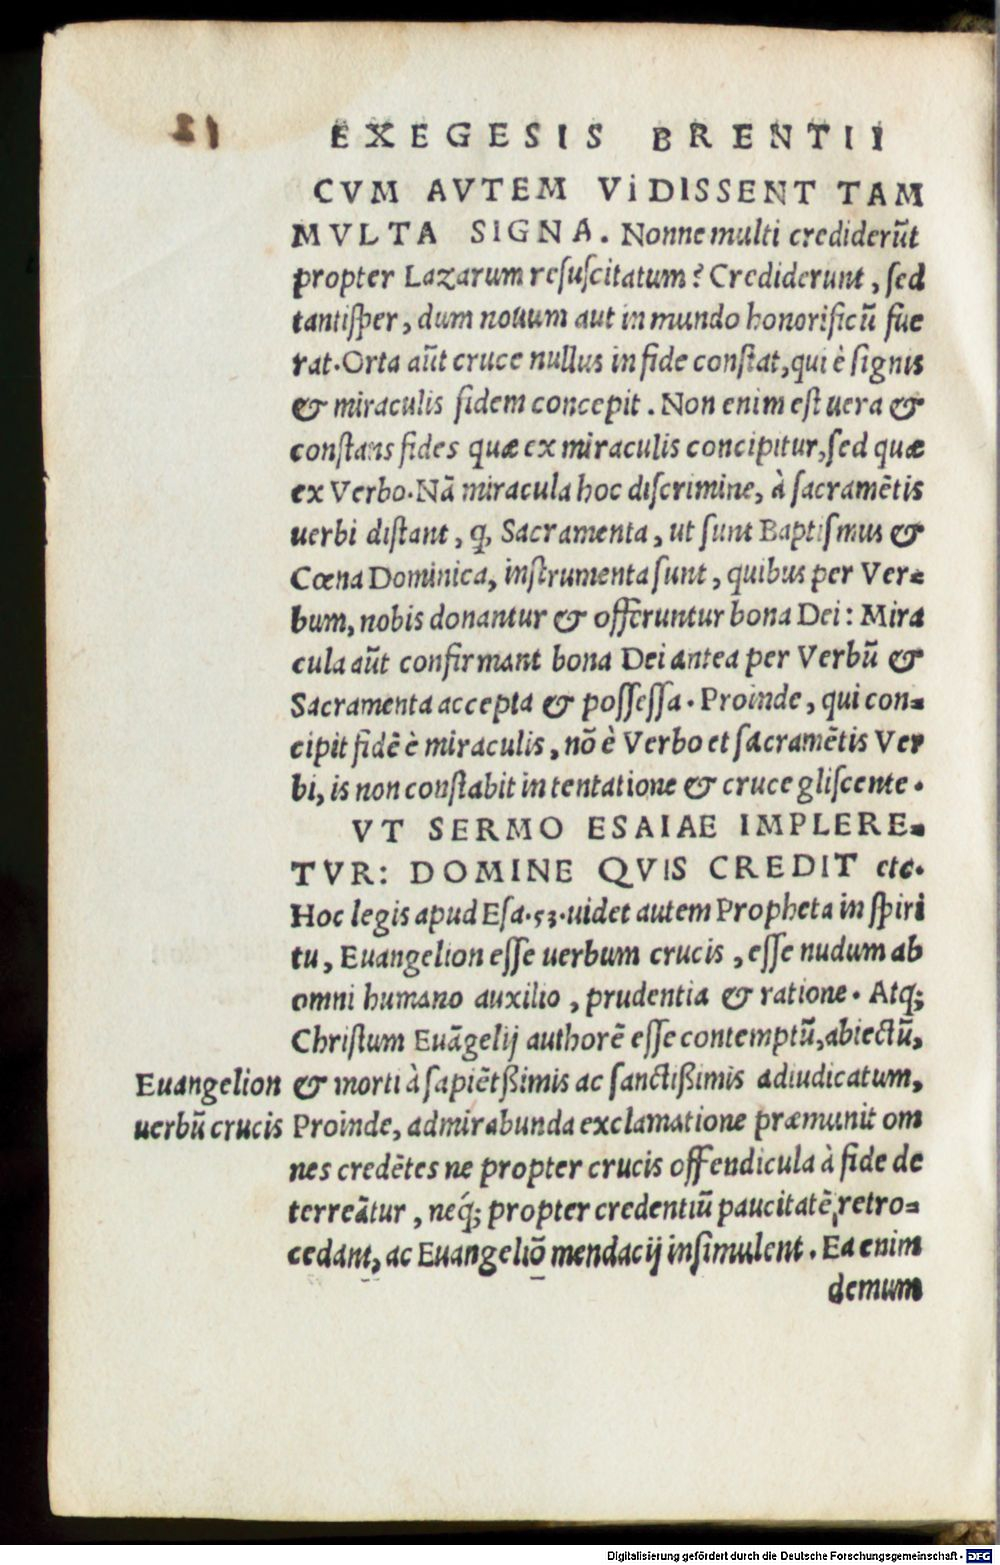 EXEGESIS BRENTII
CVM AVTEM ViDISSENT TAM
MVLTA SIGNA. Nonne multi crediderūt
propter Lazarum resuscitatum? Crediderunt, sed
tantisper, dum nouum aut in mundo honorificū fue
rat. Orta aūt cruce nullus in fide constat, qui è signis
& miraculis fidem concepit. Non enim est uera &
constans fides quæ ex miraculis concipitur, sed quæ
ex Verbo. Nā miracula hoc discrimine, à sacramētis
uerbi distant, ꝙ Sacramenta, ut sunt Baptismus &
Cœna Dominica, instrumenta sunt, quibus per Ver=
bum, nobis donantur & offeruntur bona Dei: Mira
cula aūt confirmant bona Dei antea per Verbū &
Sacramenta accepta & possessa. Proinde, qui con=
cipit fidē è miraculis, nō è Verbo et sacramētis Ver
bi, is non constabit in tentatione & cruce gliscente.
VT SERMO ESAIAE IMPLERE=
TVR: DOMINE QVIS CREDIT etc.
Hoc legis apud Esa. 53. uidet autem Propheta in spiri
tu, Euangelion esse uerbum crucis, esse nudum ab
omni humano auxilio, prudentia & ratione. Atq;
Christum Euāgelij authorē esse contemptū, abiectū,
Euangelion & morti à sapiētßimis ac sanctißimis adiudicatum,
uerbū crucis Proinde, admirabunda exclamatione præmunit om
nes credētes ne propter crucis offendicula à fide de
terreātur, neq́; propter credentiū paucitatē, retro=
cedant, ac Euangeliō mendacij insimulent. Ea enim
demum
Digitalisierung gefördert durch die Deutsche Forschungsgemeinschaft - DFG